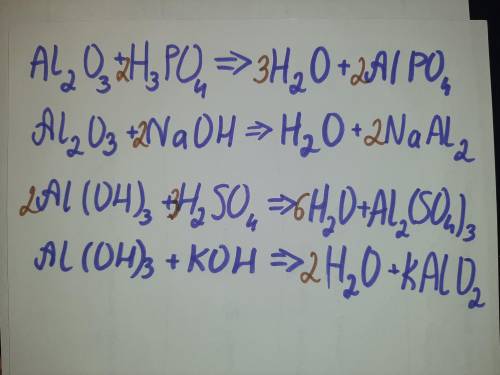 Al₂O₃ + 2H₃PO₄ ⇒ 3H₂O + 2AlPO₄
Al₂O₃ + 2NaOH ⇒ H₂O + 2NaAl₂
2Al(OH)₃ + 3H₂SO₄ ⇒ 6H₂O + Al₂(SO₄)₃
Al(OH)₃ + KOH ⇒ 2H₂O + KAlO₂